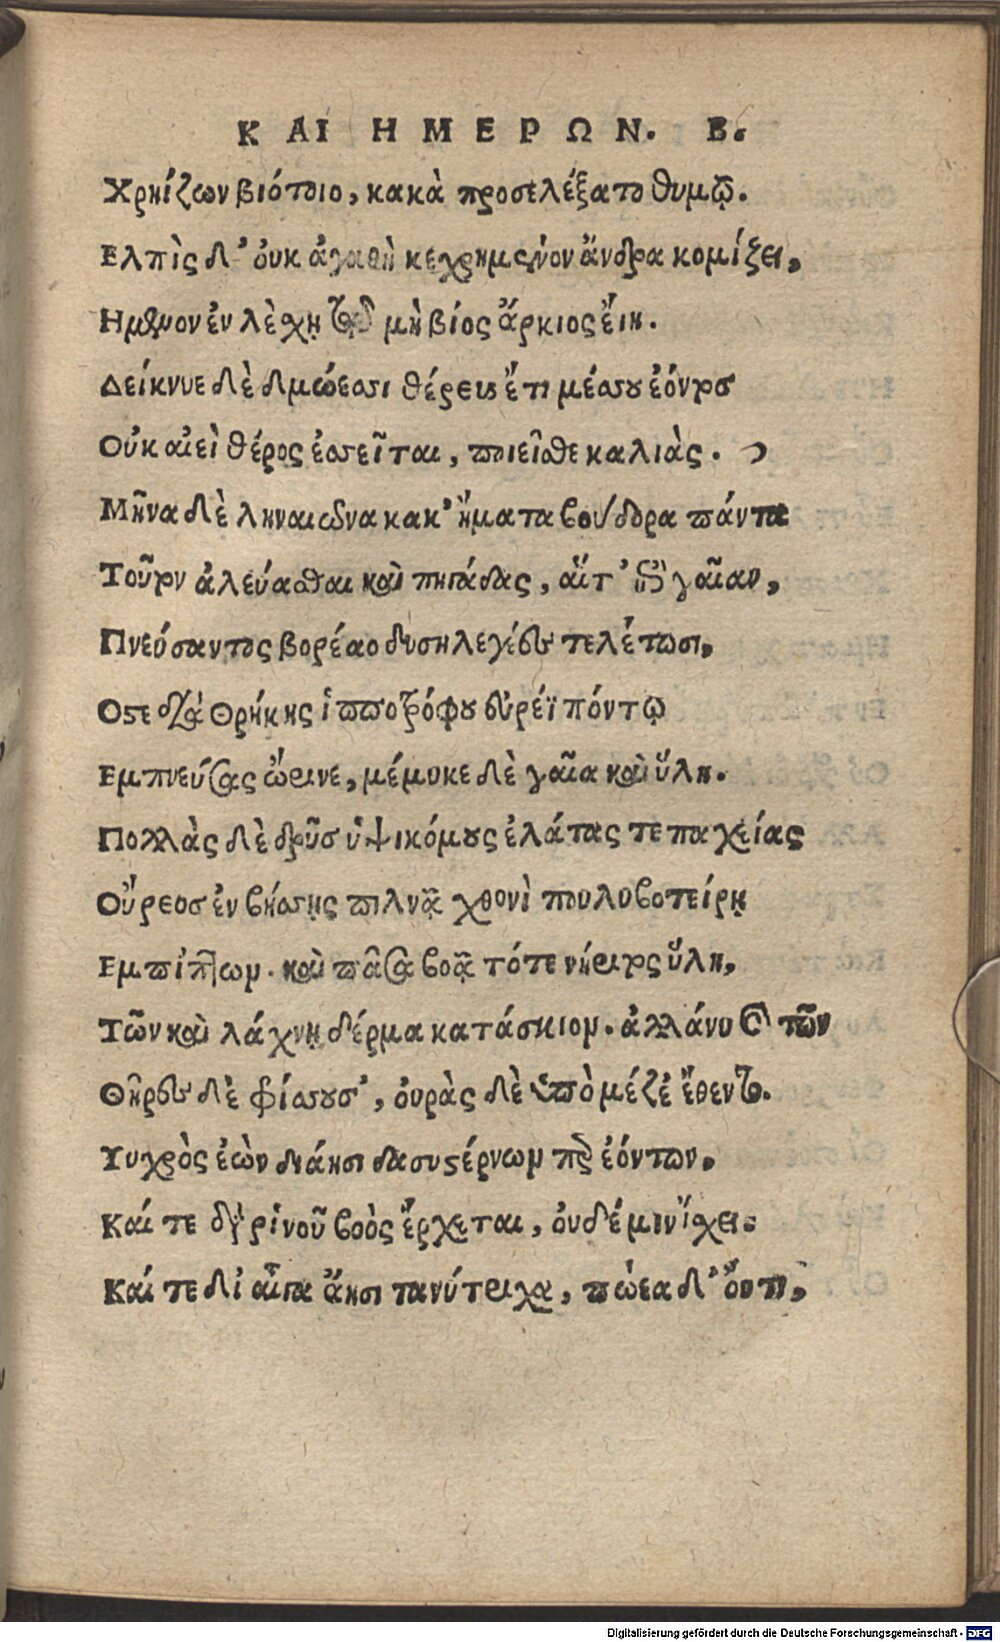 ΚΑΙ ΗΜΕΡΩΝ. Β.
Χρηίζων βιότοιο, κακὰ προσελέξατο θυμῷ.
Ελπὶς δ' ὀυκ ἀγαθὴ κεχρημένον ἄνδρα κομίζει,
Ημενον ἐν λὲχῃ τῷ μὴ βίος ἄρκιος ἔιη.
Δείκνυε δὲ δμώεσσι θέρευς ἔτι μέσσου ἐόντος
Οὐκ αἰεὶ θέρος ἐσσεῖται, ποιεῖσθε καλιὰς.
Μῆνα δὲ ληναιῶνα κακ' ἤματα βούδορα πάντα
Τοῦτον ἀλεύασθαι καὶ πηγάδας, αἵτ' ἐπὶ γαῖαν,
Πνεύσαντος βορέαο δυσηλεγέες τελέθωσι,
Οστε διὰ Θρήκης ἱπποτρόφου ἐυρέϊ πόντῳ
Εμπνεύσας ὤρινε, μέμυκε δὲ γαῖα καὶ ὕλη.
Πολλὰς δὲ δρῦσ ὑψικόμους ἐλάτας τε παχείας
Οὔρεοσ ἐν βήσσῃς πιλνᾷ χθονὶ πουλυβοτείρῃ
Εμπίπτων. καὶ πᾶσα βοᾷ τότε νήριτος ὕλη,
Τῶν καὶ λάχνῃ δέρμα κατάσκιον. ἀλλάνυ καὶ τῶν
Θῆρες δὲ φρίσσουσ', ὀυρὰς δὲ ὑπὸ μέζἐ ἔθεντο.
Υυχρὸς ἐὼν διάησι δασυστέρνων περ ἐόντων,
Καί τε διὰ ρἱνοῦ βοὸς ἔρχεται, ὀυδέ μιν ἴχει.
Καί τε δἰ αἶγα ἄησι τανύτριχα, πώεα δ' ὄυτι,
Digitalisierung gefördert durch die Deutsche Forschungsgemeinschaft - DFG